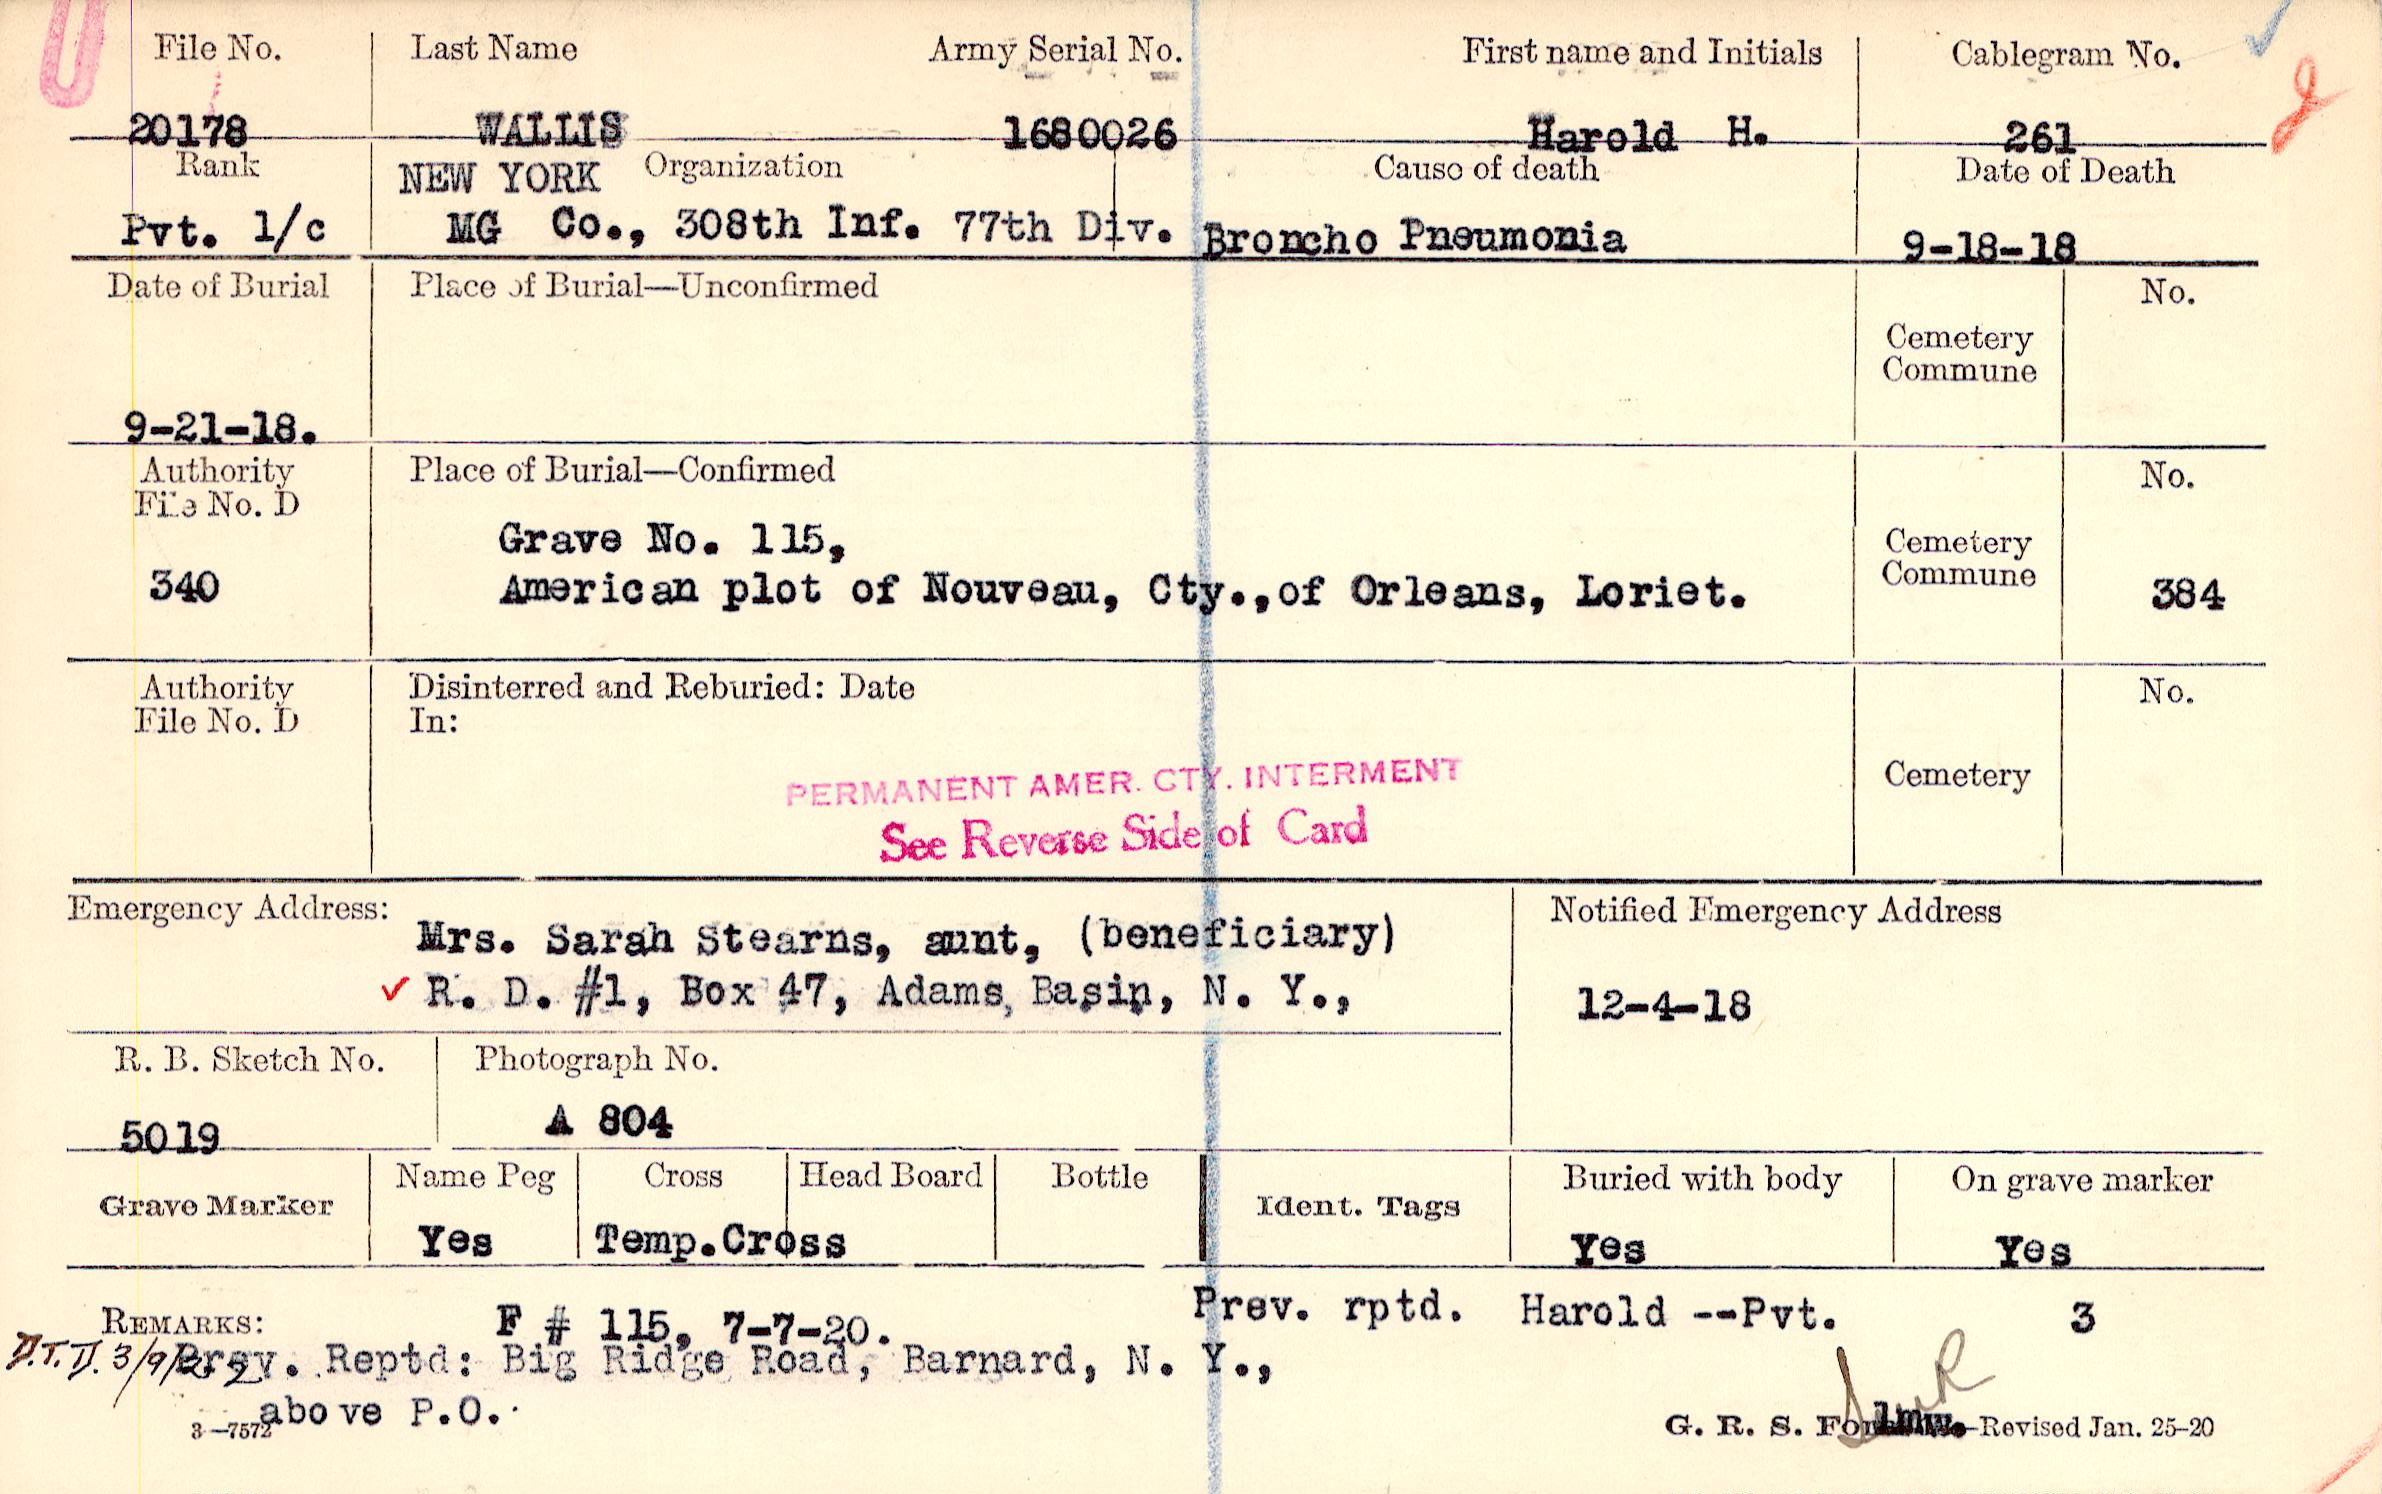 File No. Last Name Army Serial No. First name and Initials Cablegram No.
20178 WALLIS 1680026 Harold H. 261
Rank NEW YORK Organization Cause of death Date of Death
Pvt. 1/c MG Co., 308th Inf. 77th Div. Broncho Pneumonia 9-18-18
Date of Burial Place of Burial—Unconfirmed No.
Cemetery
Commune
9-21-18.
Authority Place of Burial—Confirmed No.
File No. D
Grave No. 115, Cemetery
340 American plot of Nouveau, Cty.,of Orleans, Loriet. Commune 384
Authority Disinterred and Reburied: Date No.
File No. D In:
PERMANENT AMER. CTY. INTERMENT Cemetery
See Reverse Side of Card
Emergency Address: Notified Emergency Address
Mrs. Sarah Stearns, aunt, (beneficiary)
✓ R. D. #1, Box 47, Adams Basin, N. Y., 12-4-18
R. B. Sketch No. Photograph No.
5019 A 804
Grave Marker Name Peg Cross Head Board Bottle Ident. Tags Buried with body On grave marker
Yes Temp.Cross Yes Yes
REMARKS: F # 115, 7-7-20. Prev. rptd. Harold --Pvt. 3
D.T.D. Prev. Reptd: Big Ridge Road, Barnard, N. Y.,
above P.O.
3—7572 G. R. S. lmw. —Revised Jan. 25-20